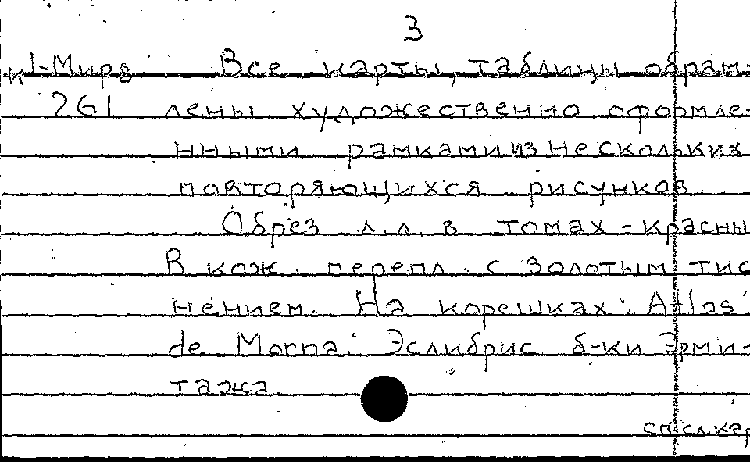 3
К1-Мира Все карты, таблицы обрам-
261 лены художественно оформле-
нными рамками из нескольких
повторяющихся рисунков
Обрез л.л. в томах - красны
В кож. перепл. с золотым тис
нением. На корешках: "Atlas
de Morna". Эслибрис б-ки Эрми-
тажа
см. сл. кар